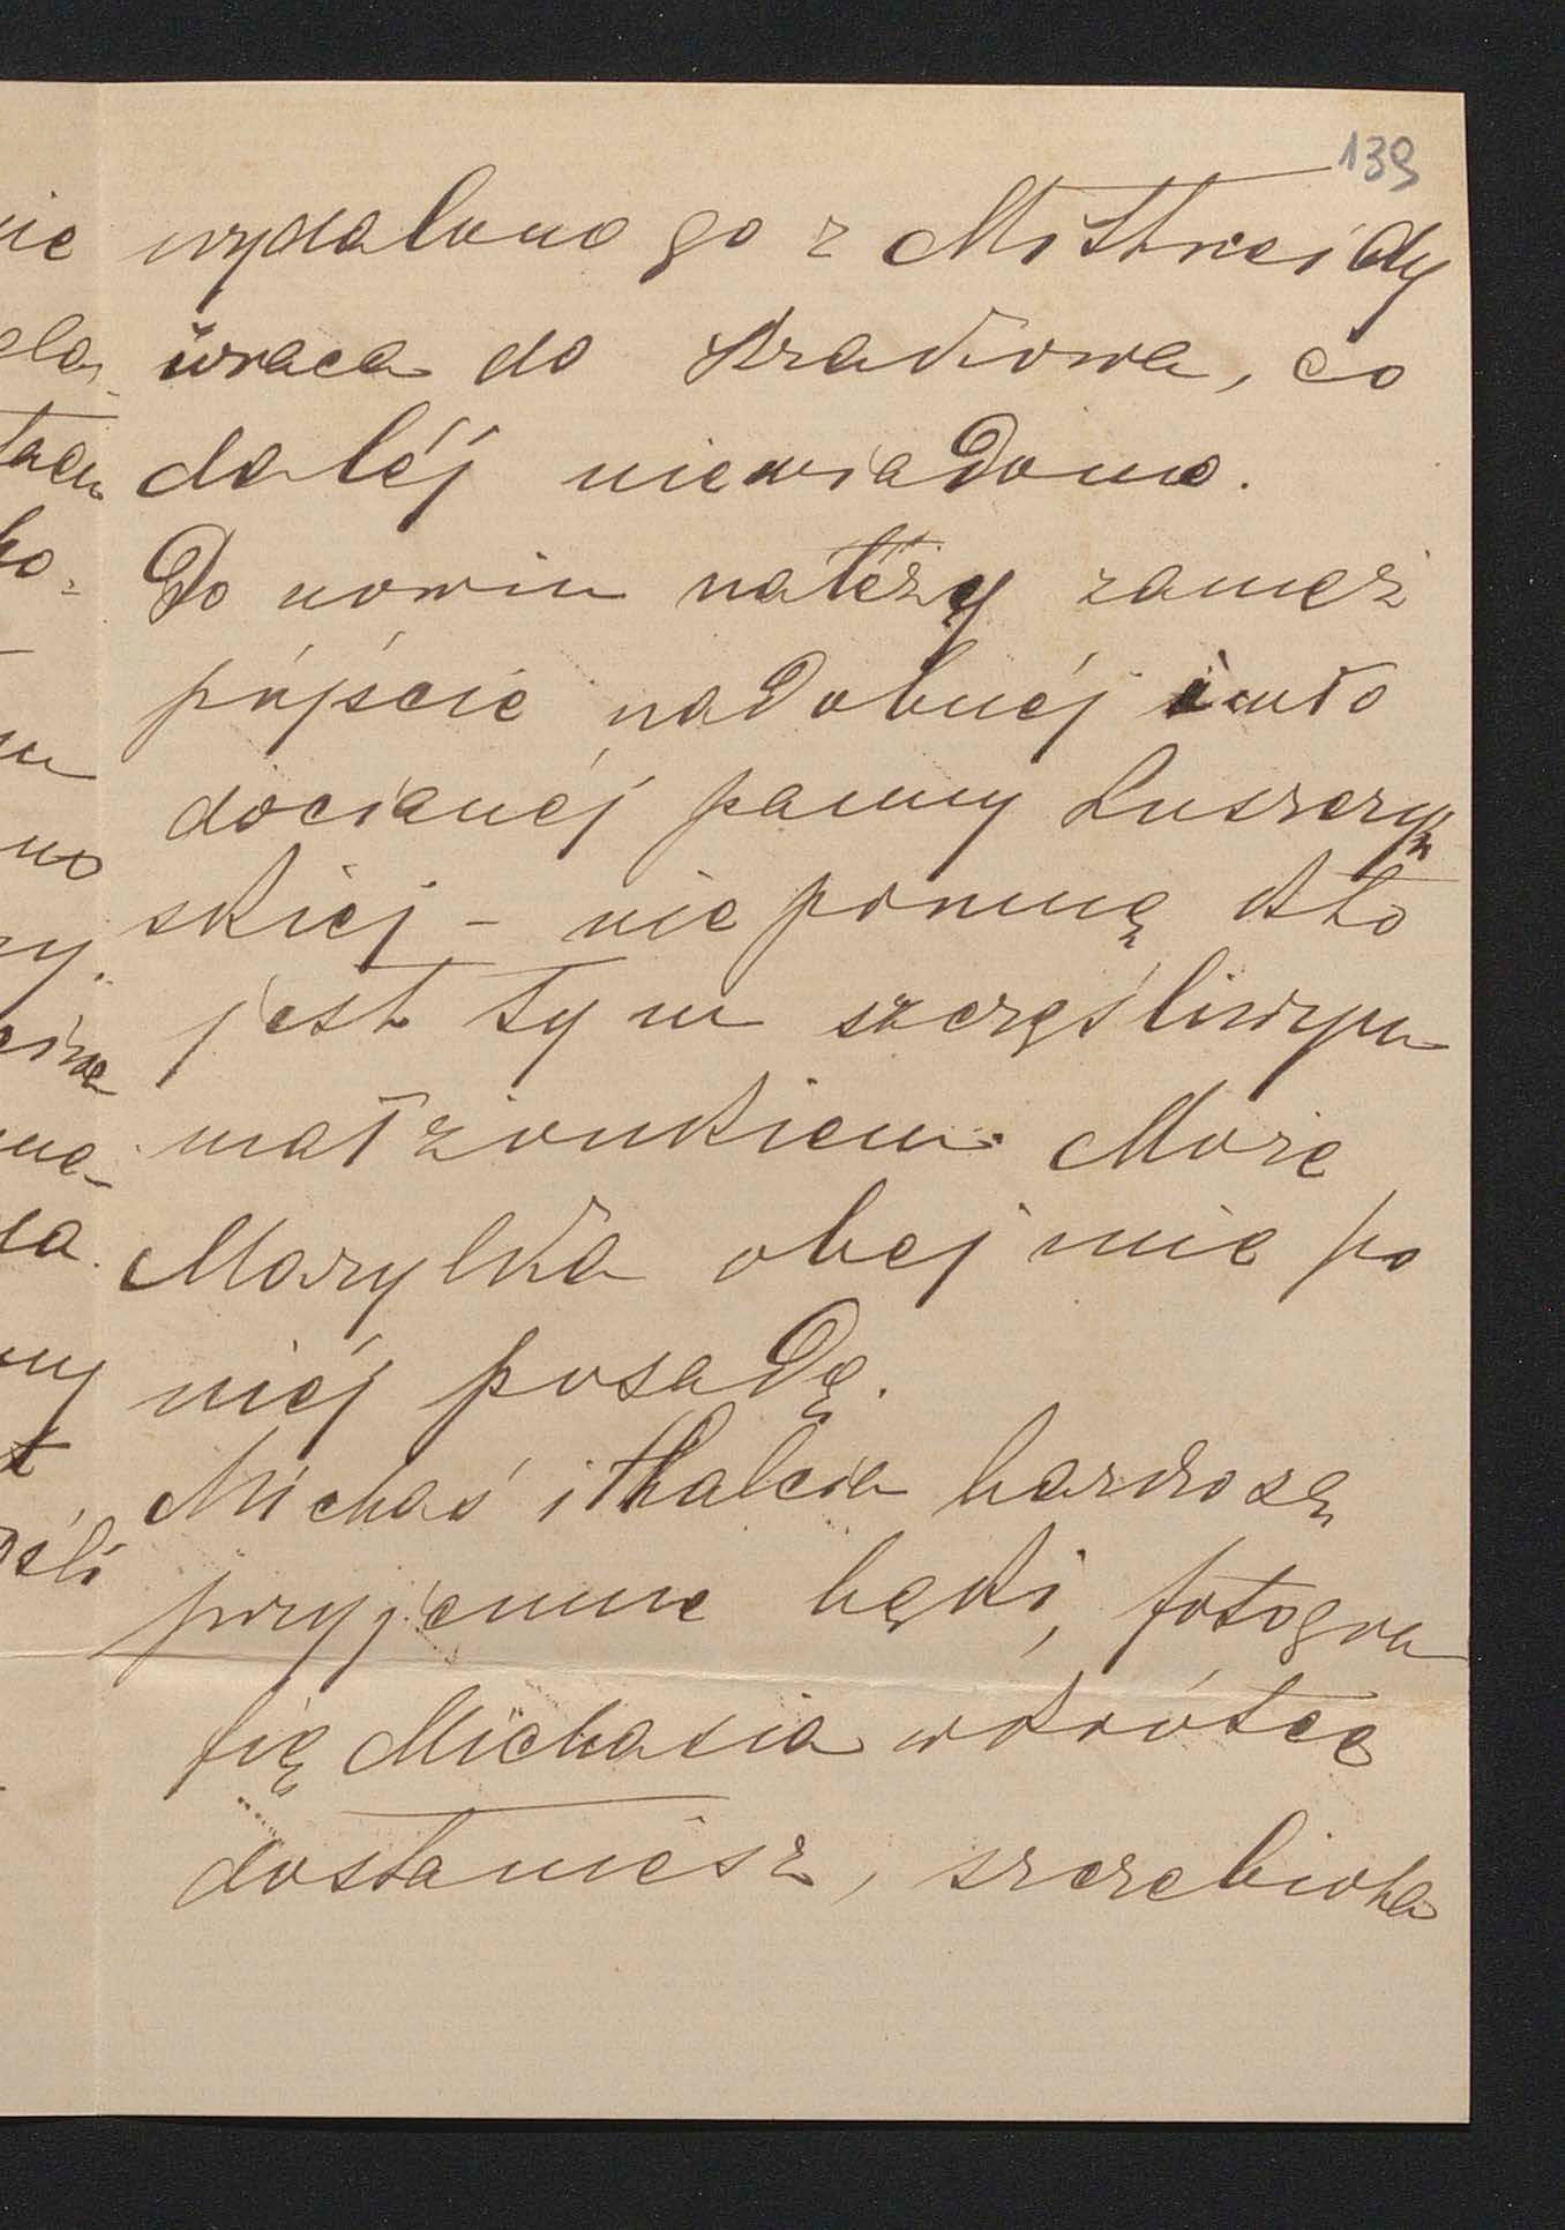 139
wydalono go z Mittweidy
wraca do Krakowa, co
daléj niewiadomo.
Do nowin należy zamęż
pójście nadobnéj i mło
docianéj panny Łuszczyń
skiej – nie pomnę kto
jest tym szczęśliwym
małżonkiem. Może
Marylka obejmie po
niéj posadę.
Michaś i Halcia bardzo są
przyjemne bęki, fotogra
fię Michasia wkrótce
dostaniesz, szczebiota